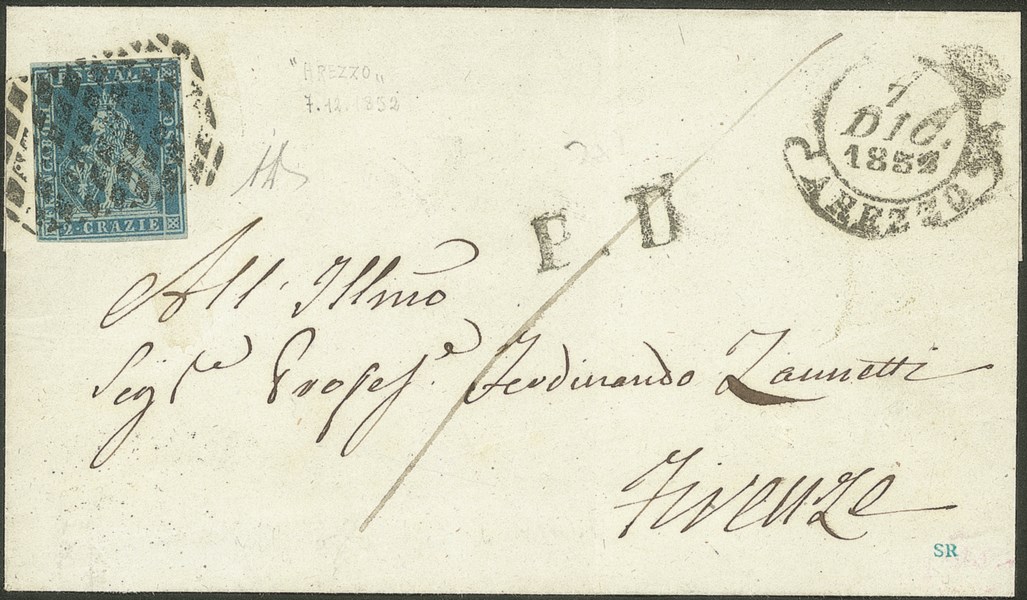 FRANCOBOLLO
POSTALE
TOSCANO
2 CRAZIE
"AREZZO"
7.12.1852
7
DIC.
1852
AREZZO
P. D
All' Illmo
Sigre Profesre Ferdinando Zannetti
Firenze
SR